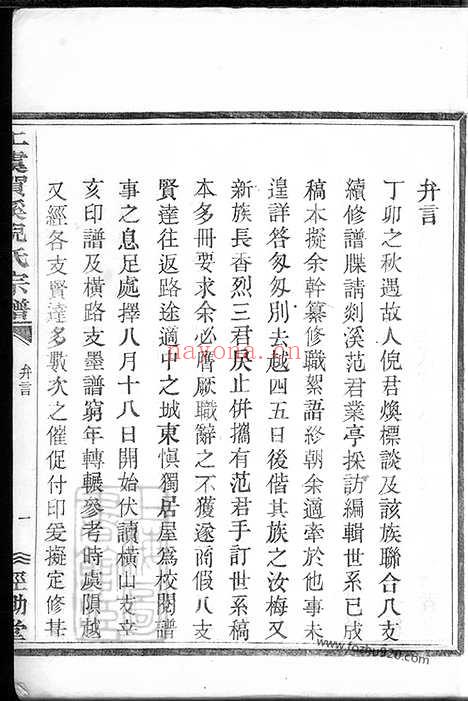 弁言
丁卯之秋遇故人倪君煥標談及該族聯合八支
續修譜牒請剡溪范君業亭採訪編輯世系已成
稿本擬余幹纂修職絮語終朝余適牽於他事未
遑詳答匆匆別去越四五日後偕其族之汝梅又
新族長香烈三君戾止併攜有范君手訂世系稿
本多冊要求余必膺厥職辭之不獲遂商假八支
賢達往返路途適中之城東愼獨居屋爲校閱譜
事之息足處擇八月十八日開始伏讀橫山支辛
亥印譜及橫路支墨譜窮年轉輾參考時處隕越
又經各支賢達多數次之催促付印爰擬定修葺
上虞賀溪倪氏宗譜
弁言
一
經勤堂
nayona.cn
www.fozhu920.com